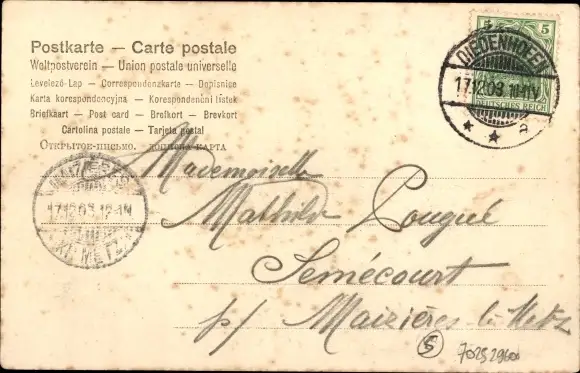 Postkarte — Carte postale
Weltpostverein — Union postale universelle
Levelező-Lap — Correspondenzkarte — Dopisnice
Karta korespondencyjna — Korespondenční lístek
Briefkaart — Post card — Brefkort — Brevkort
Cartolina postale — Tarjeta postal
Открытое-письмо. — дописна карта
5 5
DIEDENHOFEN
17.12.03. 10-11V.
DEUTSCHES REICH
* * a
17.12.03. 12-1N
METZ
Mademoiselle
Mathilde Pougué
Semécourt
p/ Maizières l. Metz
5